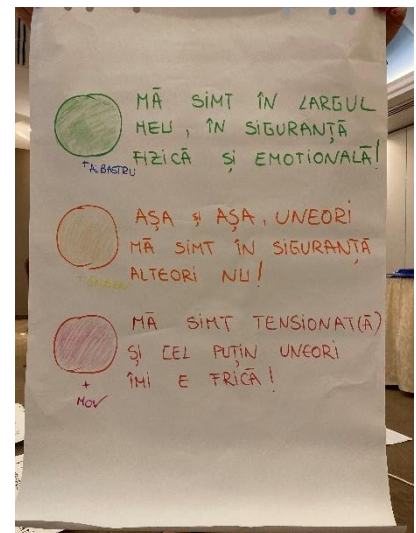 MĂ SIMT ÎN LARGUL
MEU, ÎN SIGURANȚĂ
FIZICĂ ȘI EMOTIONALĂ!
+ ALBASTRU
AȘA ȘI AȘA, UNEORI
MĂ SIMT ÎN SIGURANȚĂ
ALTEORI NU!
+ GALBEN
MĂ SIMT TENSIONAT(Ă)
ȘI CEL PUȚIN UNEORI
ÎMI E FRICĂ!
+
MOV